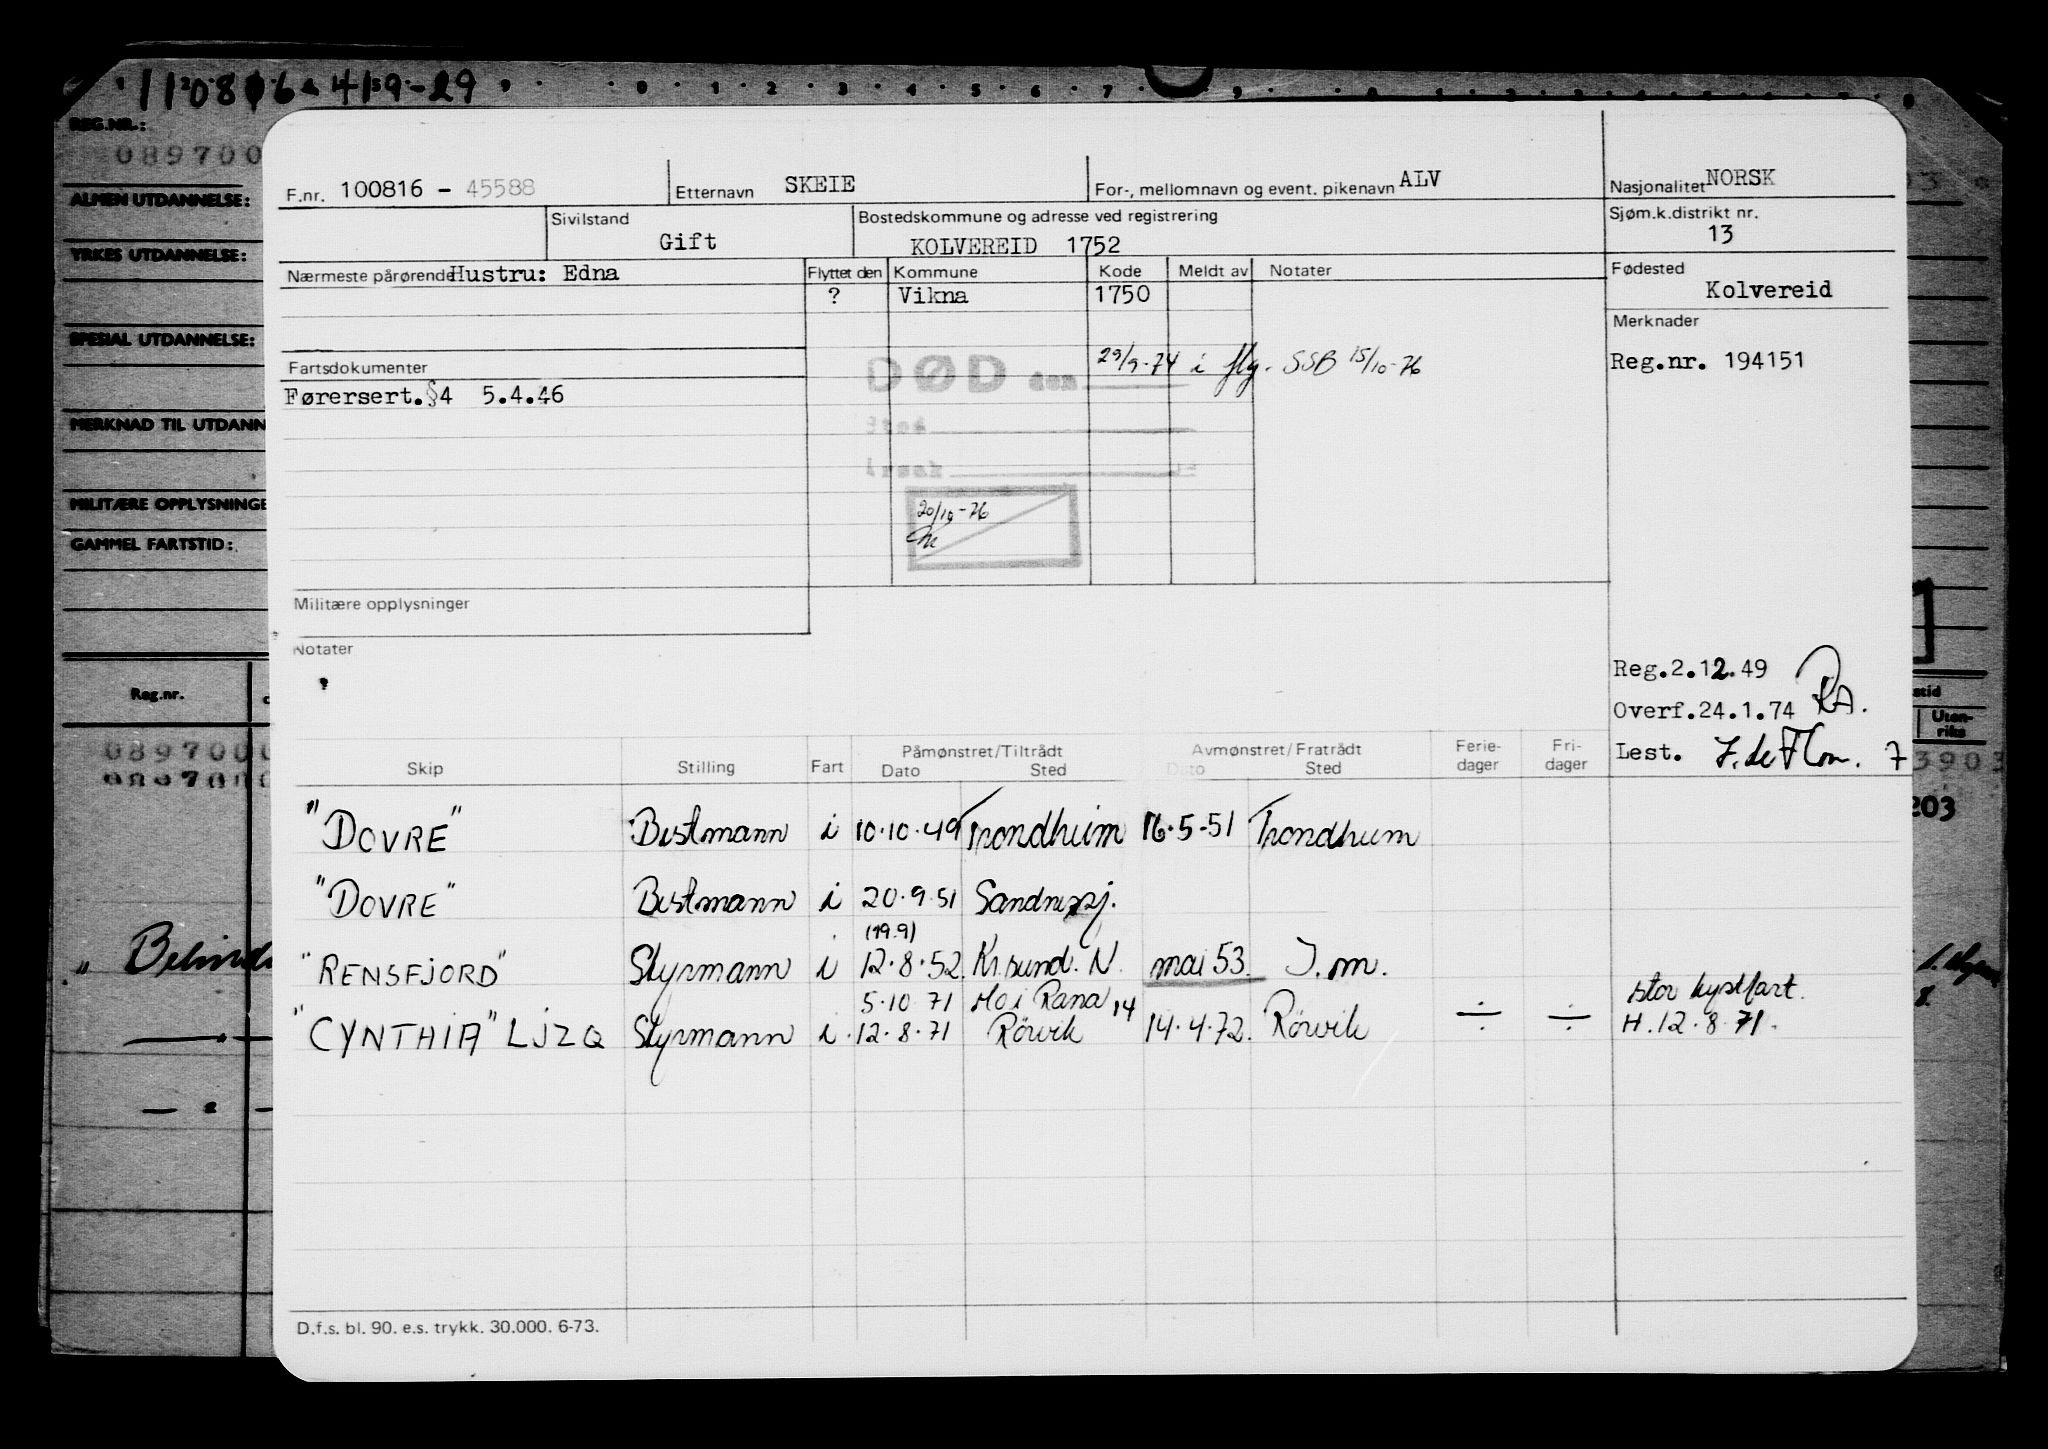 110816-419-29
REG.NR.:
089700
ALMEN UTDANNELSE:
YRKES UTDANNELSE:
SPESIAL UTDANNELSE:
MERKNAD TIL UTDANN
MILITÆRE OPPLYSNINGE
GAMMEL FARTSTID:
Reg.nr.
089700
F.nr. 100816 - 45588 Etternavn SKEIE For-, mellomnavn og event. pikenavn ALV Nasjonalitet NORSK
Sivilstand Gift Bostedskommune og adresse ved registrering KOLVEREID 1752 Sjøm.k.distrikt nr. 13
Nærmeste pårørende Hustru: Edna Flyttet den Kommune Kode Meldt av Notater Fødested Kolvereid
? Vikna 1750
Merknader
Reg.nr. 194151
Fartsdokumenter
DØD den 29/9-74 i flg. SSB 15/10-76
Førersert.§4 5.4.46
Sted
Årsak
20/10-76
Militære opplysninger
Notater
Reg.2.12.49
Overf.24.1.74 RA.
Lest.
Skip Stilling Fart Påmønstret/Tiltrådt Dato Sted Avmønstret/Fratrådt Dato Sted Ferie-dager Fri-dager
"DOVRE" Bestmann i 10.10.49 Trondheim 16.5-51 Trondheim
"DOVRE" Bestmann i 20.9.51 Sandnessj.
(19.9)
"RENSFJORD" Styrmann i 12.8.52 Kr.sund. N. mai 53. I.m.
5.10.71 Mo i Rana 14 stor kystfart.
"CYNTHIA" LJZQ Styrmann i 12.8.71 Rörvik 14.4.72. Rörvik ÷ ÷ H.12.8.71.
D.f.s. bl. 90. e.s. trykk. 30.000. 6-73.
stid
Uten-
riks
3903
203